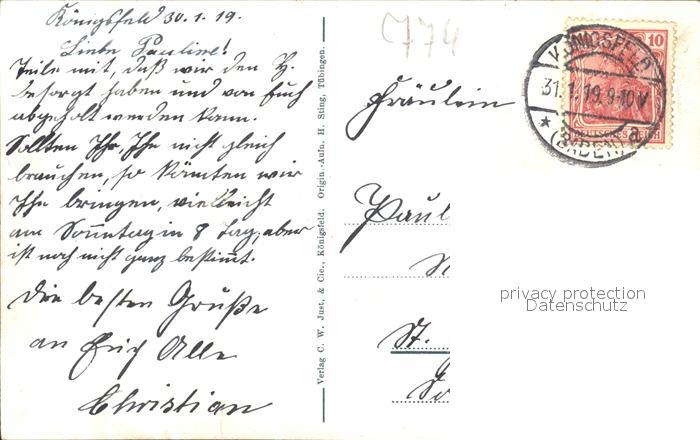 Königsfeld 30.1.19.
Liebe Pauline!
Teile mit, daß wir den H.
besorgt haben und von Euch
abgeholt werden kann.
Sollten Ihr, Ihn nicht gleich
brauchen, so könnten wir
Ihn bringen, vielleicht
am Sonntag in 8 Tag, aber
ist noch nicht ganz bestimmt.
Die besten Grüße
an Euch Alle
Christian
Verlag C. W. Just, & Cie., Königsfeld. Origin.-Aufn. H. Sting, Tübingen.
774
Fräulein
Paul
St.
KÖNIGSFELD
31.1.19.9-10V
★ (BADEN) a
10
DEUTSCHES REICH
privacy protection
Datenschutz